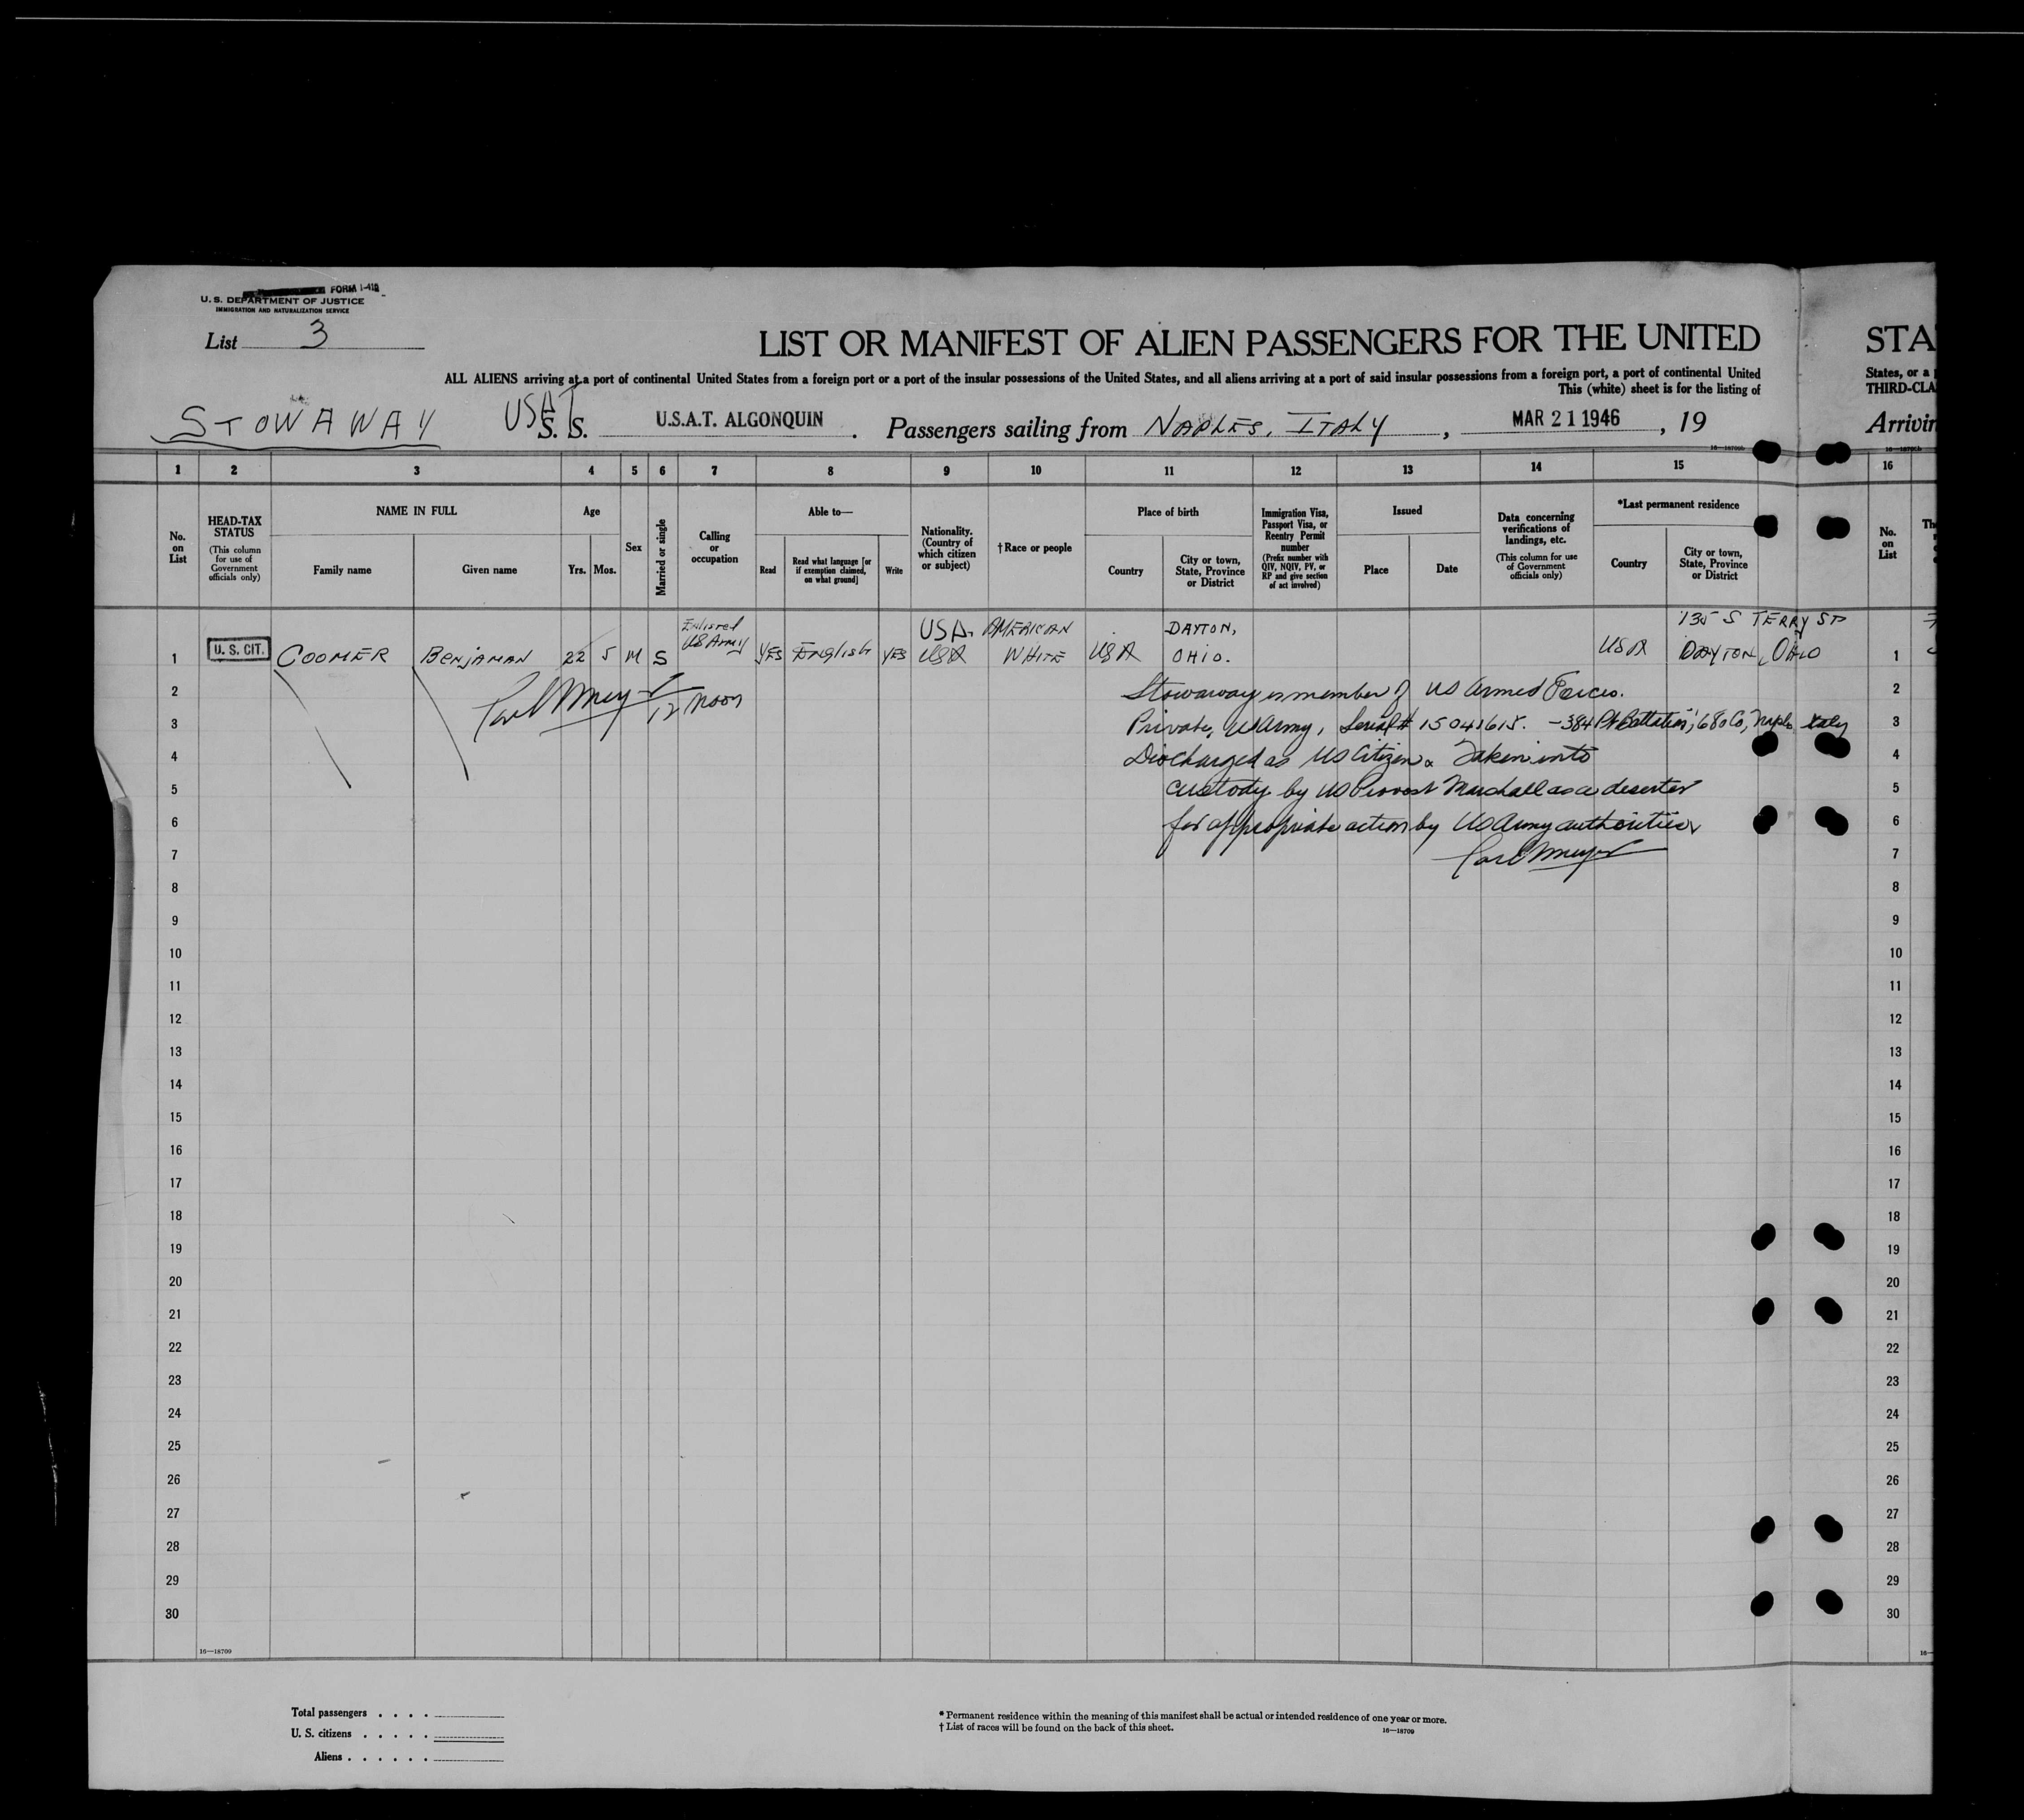 FORM I-418
U. S. DEPARTMENT OF JUSTICE
IMMIGRATION AND NATURALIZATION SERVICE
List 3
LIST OR MANIFEST OF ALIEN PASSENGERS FOR THE UNITED STA
ALL ALIENS arriving at a port of continental United States from a foreign port or a port of the insular possessions of the United States, and all aliens arriving at a port of said insular possessions from a foreign port, a port of continental United States, or a
This (white) sheet is for the listing of THIRD-CLA
STOWAWAY USAT S. S. U.S.A.T. ALGONQUIN . Passengers sailing from NAPLES, ITALY , MAR 21 1946 , 19 Arrivin
16—18709b
1 2 3 4 5 6 7 8 9 10 11 12 13 14 15 16
No. on List
HEAD-TAX STATUS (This column for use of Government officials only)
NAME IN FULL
Family name Given name
Age
Yrs. Mos.
Sex
Married or single
Calling or occupation
Able to—
Read Read what language [or if exemption claimed, on what ground] Write
Nationality. (Country of which citizen or subject)
† Race or people
Place of birth
Country City or town, State, Province or District
Immigration Visa, Passport Visa, or Reentry Permit number (Prefix number with QIV, NQIV, PV, or RP and give section of act involved)
Issued
Place Date
Data concerning verifications of landings, etc. (This column for use of Government officials only)
*Last permanent residence
Country City or town, State, Province or District
No. on List
Enlisted USA. AMERICAN DAYTON, 135 S TERRY ST
1 U. S. CIT. COOMER BENJAMAN 22 5 M S US Army YES English YES USA WHITE USA OHIO. USA DAYTON, OHIO 1
2 12 Noon Stowaway is member of US Armed Forces. 2
3 Private, US Army, Serial # 15041615. - 384 Battalion, 680 Co, Naples Italy 3
4 Discharged as US Citizen & Taken into 4
5 custody by US Provost Marshall as a deserter 5
6 for appropriate action by US Army authorities 6
7 7
8 8
9 9
10 10
11 11
12 12
13 13
14 14
15 15
16 16
17 17
18 18
19 19
20 20
21 21
22 22
23 23
24 24
25 25
26 26
27 27
28 28
29 29
30 30
16—18709 16—
Total passengers . . . .
U. S. citizens . . . . .
Aliens . . . . . .
* Permanent residence within the meaning of this manifest shall be actual or intended residence of one year or more.
† List of races will be found on the back of this sheet. 16—18709